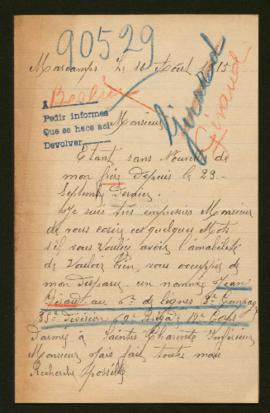 90529
Mascamps Le 16 Août 1915
Berlin
A
Pedir informes
Que se hace así
Devolver
Girard
Giraud
Monsieur
Étant sans Nouvel de
mon frère Depuis le 23
Septembre Dernier
Je suis très empresser Monsieur
de vous écrire ces quelques Mots
s'il vous Voulier avoir l'amabilité
de Vouloir bien vous occuper de
mon Disparu un nommé Jean
Giraud au 6e de lignes 9e Compag
35e Division 69e Brigade 18e Corps
D'armée à Saintes Charente Inférieure
Monsieur fais fait toute mes
Recherche Possible